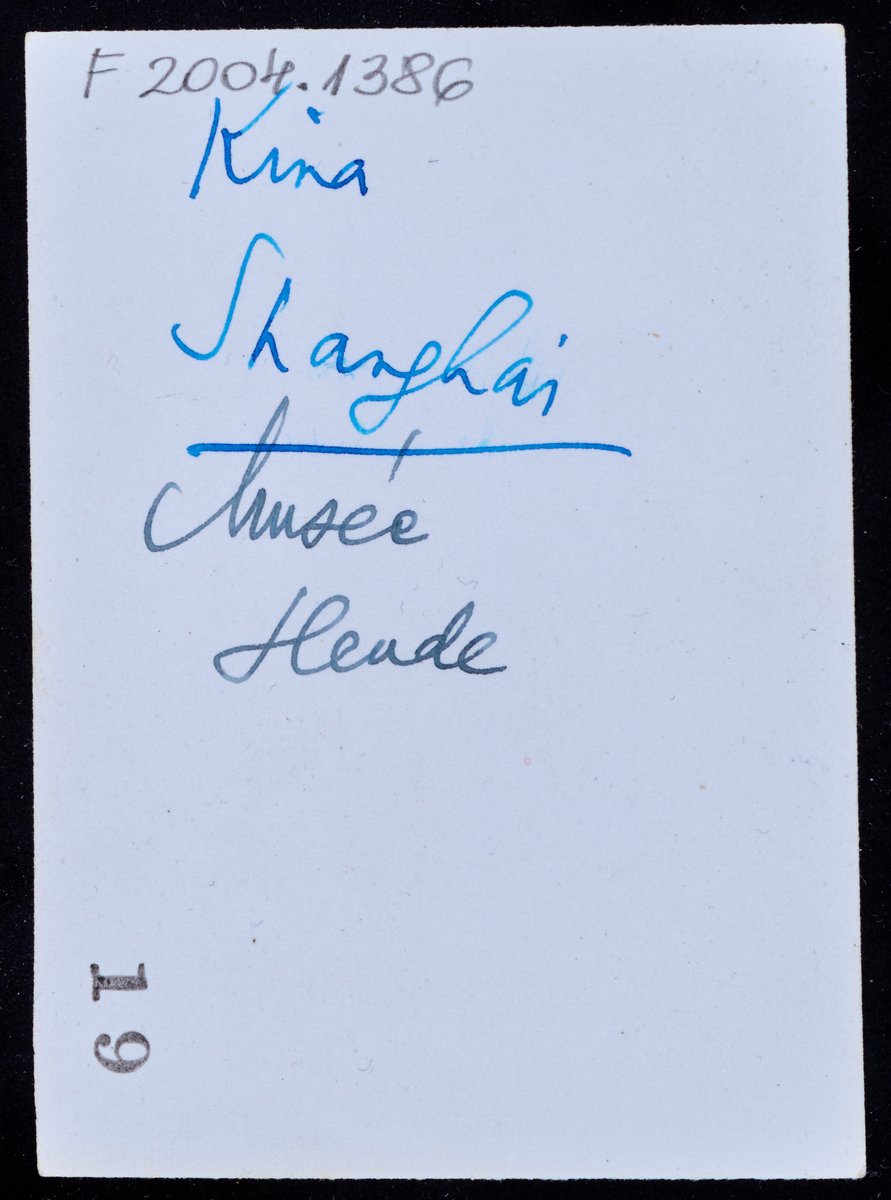 F 2004.1386
Kina
Shanghai
Musée
Heude
19